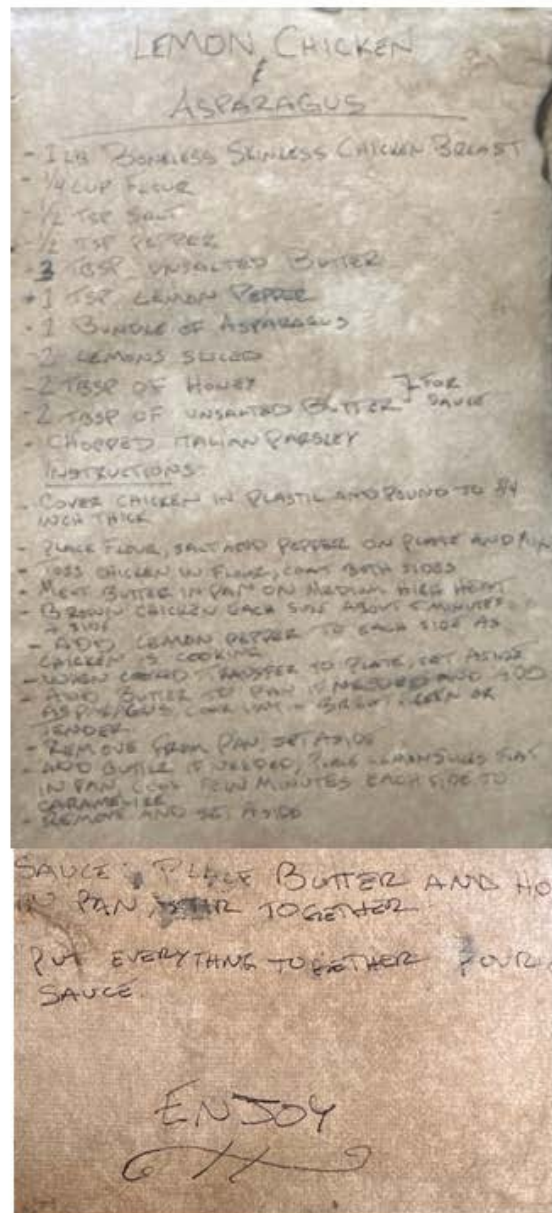 LEMON CHICKEN
&
ASPARAGUS
- 1 LB BONELESS SKINLESS CHICKEN BREAST
- 1/4 CUP FLOUR
- 1/2 TSP SALT
- 1/2 TSP PEPPER
- 3 TBSP UNSALTED BUTTER
- 1 TSP LEMON PEPPER
- 1 BUNDLE OF ASPARAGUS
- 2 LEMONS SLICED
- 2 TBSP OF HONEY } FOR
- 2 TBSP OF UNSALTED BUTTER SAUCE
- CHOPPED ITALIAN PARSLEY
INSTRUCTIONS:
- COVER CHICKEN IN PLASTIC AND POUND TO 3/4
INCH THICK
- PLACE FLOUR, SALT AND PEPPER ON PLATE AND
- TOSS CHICKEN IN FLOUR, COAT BOTH SIDES
- MELT BUTTER IN PAN ON MEDIUM HIGH HEAT
- BROWN CHICKEN EACH SIDE ABOUT 5 MINUTES
A SIDE
- ADD LEMON PEPPER TO EACH SIDE AS
CHICKEN IS COOKING
- WHEN TRANSFER TO PLATE, SET ASIDE
- ADD BUTTER TO PAN IF NEEDED AND ADD
ASPARAGUS, COOK UNTIL BRIGHT GREEN OR
TENDER
- REMOVE FROM PAN, SET ASIDE
- ADD BUTTER IF NEEDED, PLACE LEMON SLICES FLAT
IN PAN, COOK FEW MINUTES EACH SIDE TO
CARAMELIZE
- REMOVE AND SET ASIDE
SAUCE: PLACE BUTTER AND HO
IN PAN, STIR TOGETHER
PUT EVERYTHING TOGETHER POUR
SAUCE.
ENJOY